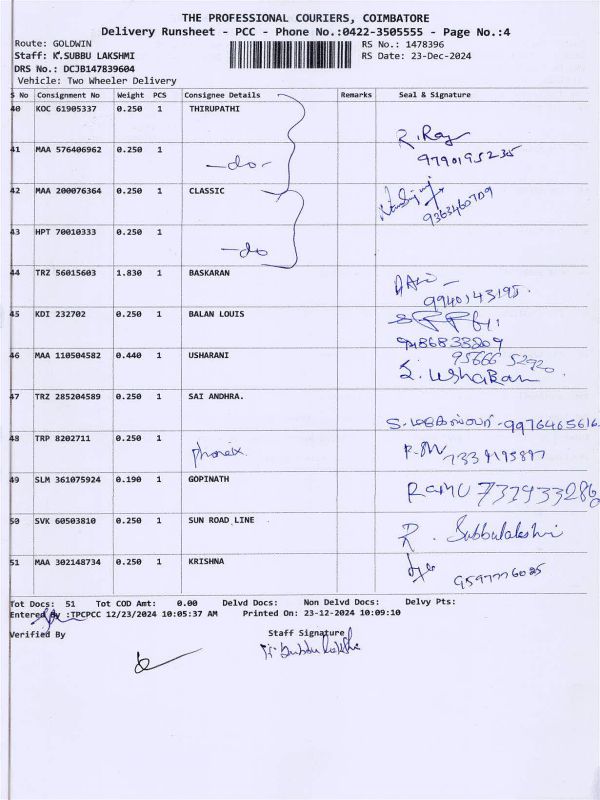 THE PROFESSIONAL COURIERS, COIMBATORE
Delivery Runsheet - PCC - Phone No.:0422-3505555 - Page No.:4
Route: GOLDWIN RS No.: 1478396
Staff: K.SUBBU LAKSHMI RS Date: 23-Dec-2024
DRS No.: DCJB147839604
Vehicle: Two Wheeler Delivery
S No Consignment No Weight PCS Consignee Details Remarks Seal & Signature
40 KOC 61905337 0.250 1 THIRUPATHI
R. Ray
41 MAA 576406962 0.250 1 -do- 9790195235
42 MAA 200076364 0.250 1 CLASSIC
9363460709
43 HPT 70010333 0.250 1 -do
44 TRZ 56015603 1.830 1 BASKARAN
9940143195.
45 KDI 232702 0.250 1 BALAN LOUIS
9486833809
46 MAA 110504582 0.440 1 USHARANI 95666 52920
S. Usharani
47 TRZ 285204589 0.250 1 SAI ANDHRA.
9976465616
48 TRP 8202711 0.250 1 phoneix
7339195897
49 SLM 361075924 0.190 1 GOPINATH RAMU 7339332860
50 SVK 60503810 0.250 1 SUN ROAD LINE R. Subbulakshmi
51 MAA 302148734 0.250 1 KRISHNA
9597776085
Tot Docs: 51 Tot COD Amt: 0.00 Delvd Docs: Non Delvd Docs: Delvy Pts:
Entered By :TPCPCC 12/23/2024 10:05:37 AM Printed On: 23-12-2024 10:09:10
Verified By Staff Signature
K. Subbu Lakshmi